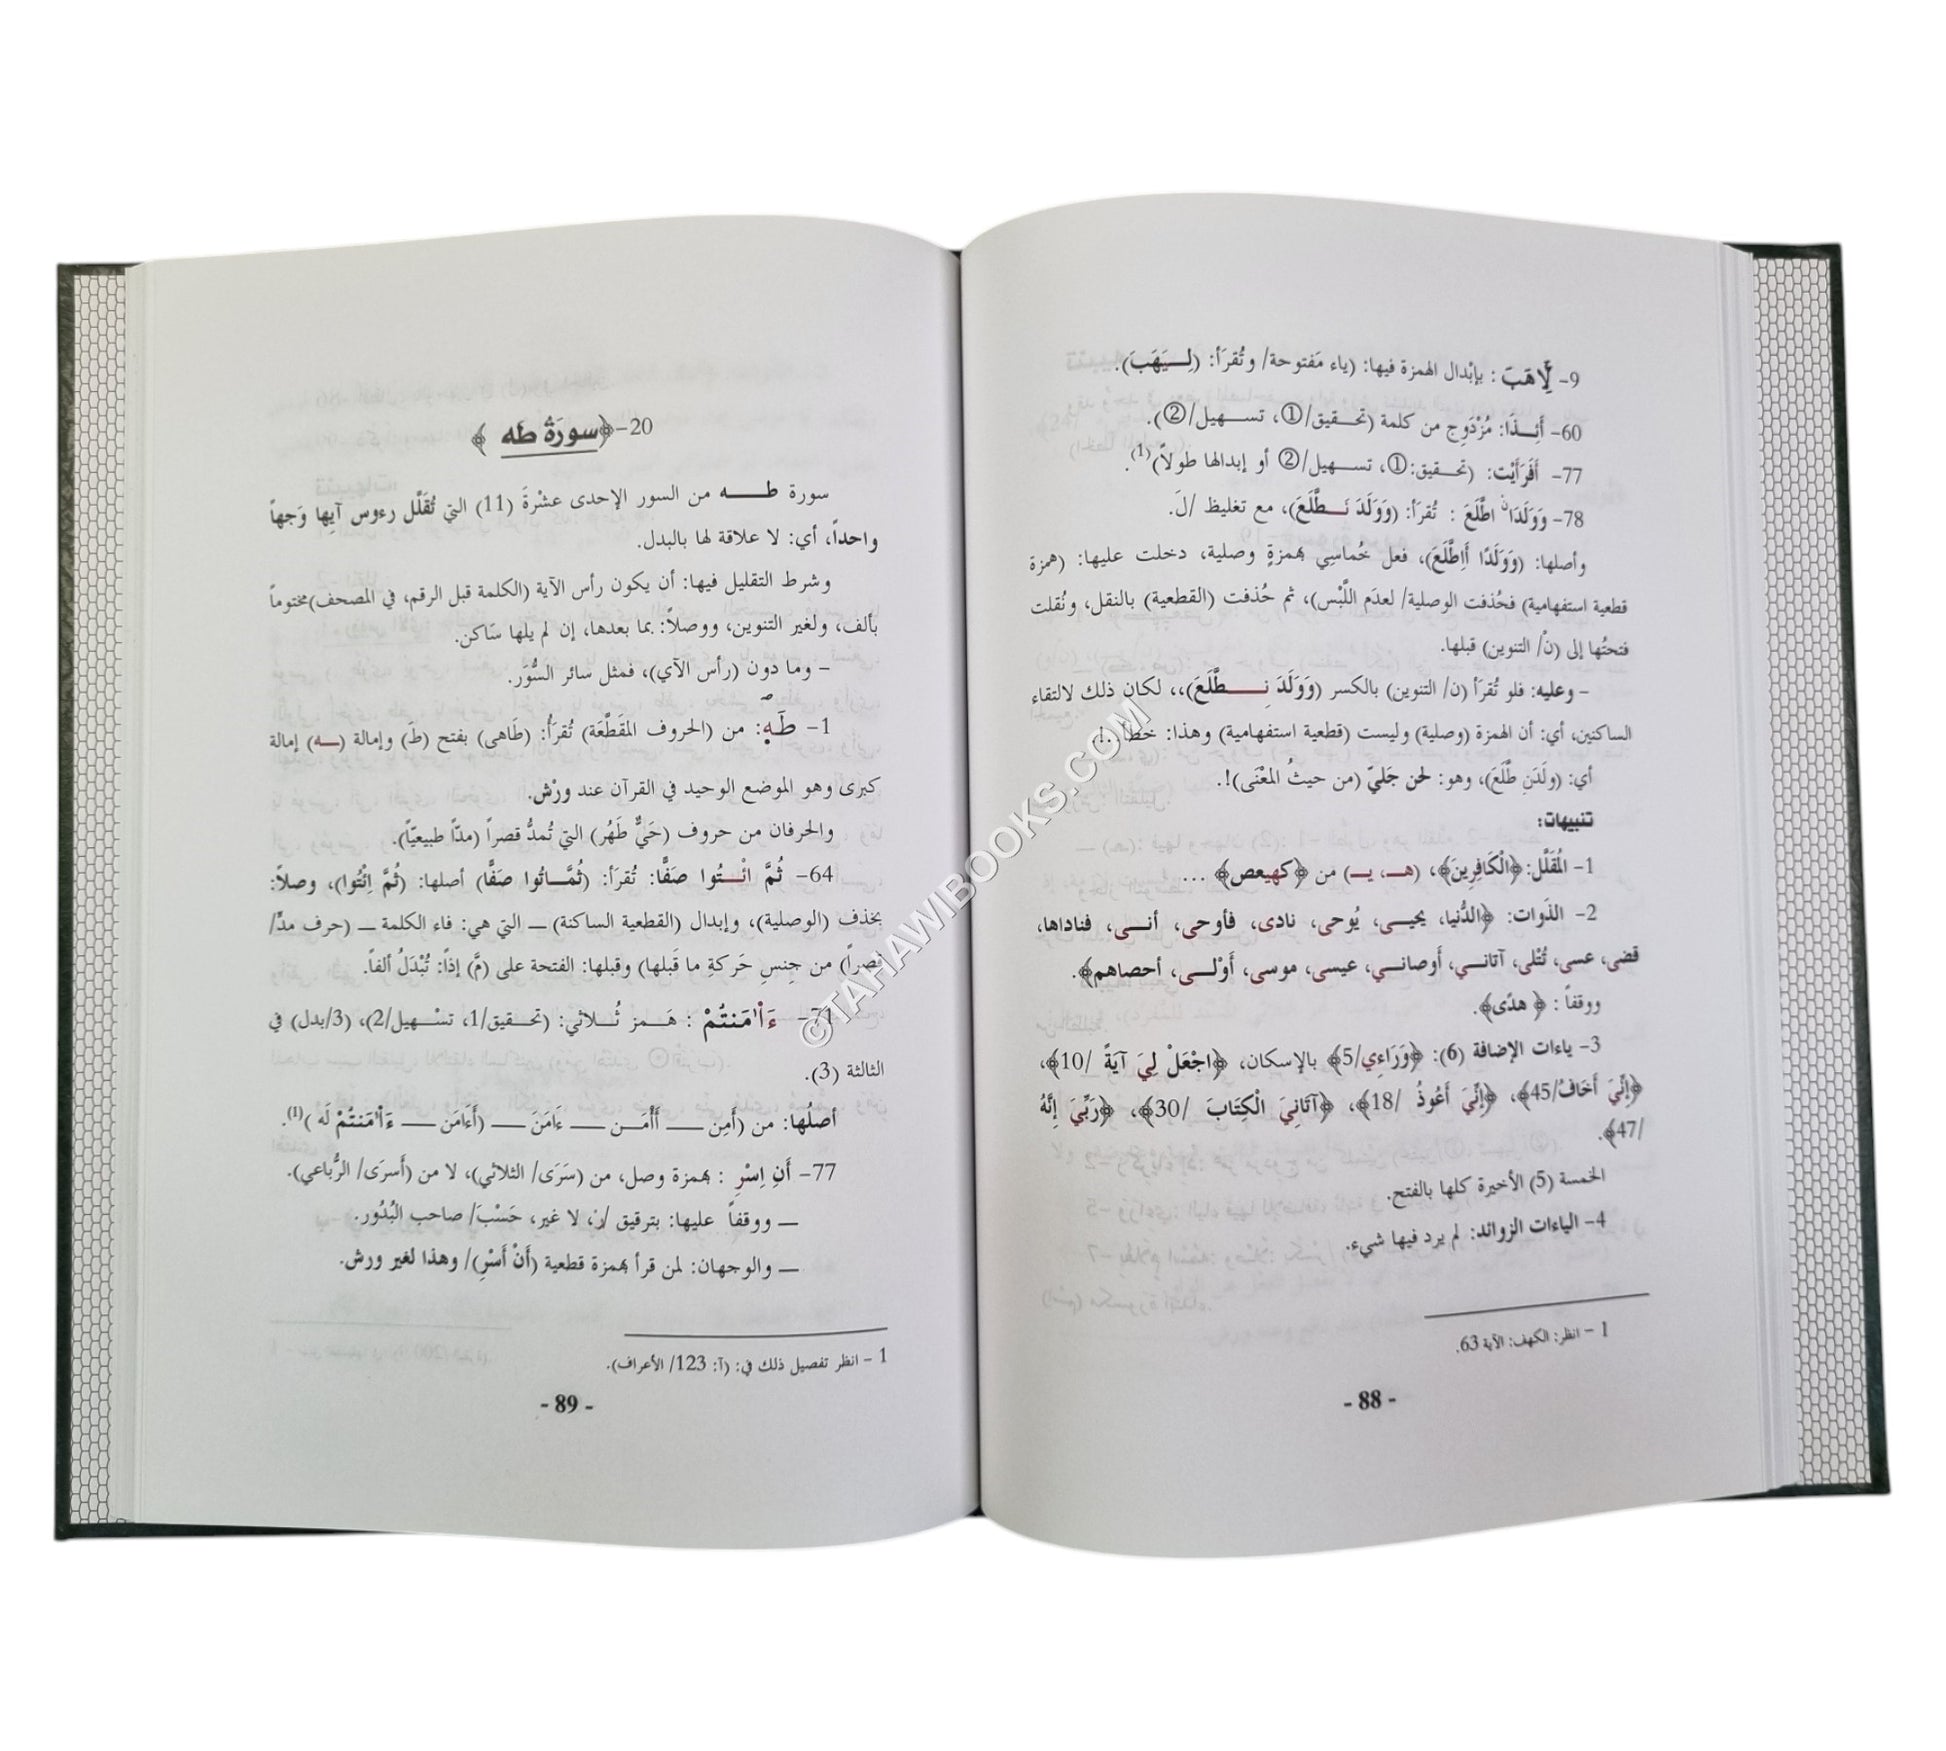 9- لِأَهَبَ : بإبْدال الهمزة فيها: (ياء مَفتوحة/ وتُقرَأ: (لِـــيَهَبَ).
60- أَئِـــذَا: مُزْدَوِج من كلمة (تحــقيق/①، تســـهيل/②).
77- أَفَرَأَيْتَ: (تحــقيق:①، تســهيل/② أو إبدالها طولاً)(1).
78- وَوَلَدًا اطَّلَعَ : تُقرَأ: (وَوَلَدَ نَـــطَّلَعَ)، مع تغليظ /لَ.
وأصلها: (وَوَلَدًا أَاِطَّلَعَ)، فعل خُماسِي بهمزةٍ وصلية، دخلت عليها: (همزة
قطعية استفهامية) فحُذفت الوصلية/ لعدَم اللَّبْس)، ثم حُذفت (القطعية) بالنقل، ونُقلت
فتحتُها إلى (نْ/ التنوين) قبلها.
- وعليه: فلو تُقرَأ (ن/ التنوين) بالكسر (وَوَلَدَ نِـــــطَّلَعَ)،، لكان ذلك لالتقاء
الساكنين، أي: أن الهمزة (وصلية) وليست (قطعية استفهامية) وهذا: خطأ..!
أي: (ولَدَنِ طَّلَعَ)، وهو: لحن جَليّ (من حيثُ المعْنَى)!.
تنبيهات:
1- المُقلَّل: ﴿الْكَافِرِينَ﴾، (هــ، يــ) من ﴿كهيعص﴾ ...
2- الذَوات: ﴿الدُّنيا، يحيـــى، يُوحى، نادى، فأوحى، أنـــى، فناداها،
قضى، عسى، تُتْلى، آتانـــي، أَوصانـــي، عيسى، موسى، أَوْلـــى، أحصاهم﴾.
ووقفاً : ﴿ هدًى﴾.
3- ياءات الإضافة (6): ﴿وَرَاءِي/5﴾ بالإسكان، ﴿اجْعَلْ لِيَ آيَةً /10﴾،
﴿إِنِّيَ أَخَافُ/45﴾، ﴿إِنِّيَ أَعُوذُ /18﴾، ﴿آتَانِيَ الْكِتَابَ /30﴾، ﴿رَبِّيَ إِنَّهُ
/47﴾.
الخمسة (5) الأخيرة كلها بالفتح.
4- الياءات الزوائد: لم يرد فيها شيء.
1 - انظر: الكهف: الآية 63.
- 88 -
20-﴿سورَةُ طَه ﴾
سورة طـــــه من السور الإحدى عشْرةَ (11) التي تُقَلَّل رءوس آيِها وَجهاً
واحداً، أي: لا علاقة لها بالبدل.
وشرط التقليل فيها: أن يكون رأس الآية (الكلمة قبل الرقم، في المصحف)مختوماً
بألف، ولغير التنوين، ووصلاً: بما بعدها، إن لم يلها سَاكن.
- وما دون (رأس الآي)، فمثل سائر السُّوَر.
1- طَـهِ: من (الحروف المقَطَّعَة) تُقرَأُ: (طَاهى) بفتح (طَ) وإمالة (ـــه) إمالة
كبرى وهو الموضع الوحيد في القرآن عند ورْش.
والحرفان من حروف (حَيٌّ طَهُر) التي تُمدُّ قصراً (مدّاً طبيعيّاً).
64- ثُمَّ ائْـــتُوا صَفًّا: تُقرَأ: (ثُمَّـــاتُوا صَفًّا) أصلها: (ثُمَّ اِئْتُوا)، وصلاً:
بحَذف (الوصلية)، وإبدال (القطعية الساكنة) — التي هي: فاء الكلمة — (حرف مدّ/
قصراً) من جِنسِ حَركةِ ما قَبلها) وقبلها: الفتحة على (مَّ) إذاً: تُبْدَلُ ألفاً.
71- ءَاْ۬مَنتُمْ : هَـمز ثُـــلاثي: (تحــقيق/1، تسْـهيل/2)، (3/بدل) في
الثالثة (3).
أصلُها: من (أَمِنَ ـــــ أَأْمَـــن ـــــ ءَامَنَ ـــــ (أَءَامَن ـــــ ءَاْ۬مَنتُمْ لَه )(1).
77- أَنِ اِسْرِ : بهمزة وصل، من (سَرَى/ الثلاثي)، لا من (أَسرَى/ الرُّباعي).
— ووقفاً عليها: بترقيق /ر، لا غير، حَسْبَ/ صاحب البُدُور.
— والوجهان: لمن قرأ بهمزة قطعية (أَنْ أَسْرِ)/ وهذا لغير ورش.
1 - انظر تفصيل ذلك في: (آ: 123/ الأعراف).
- 89 -
©TAHAWIBOOKS.COM